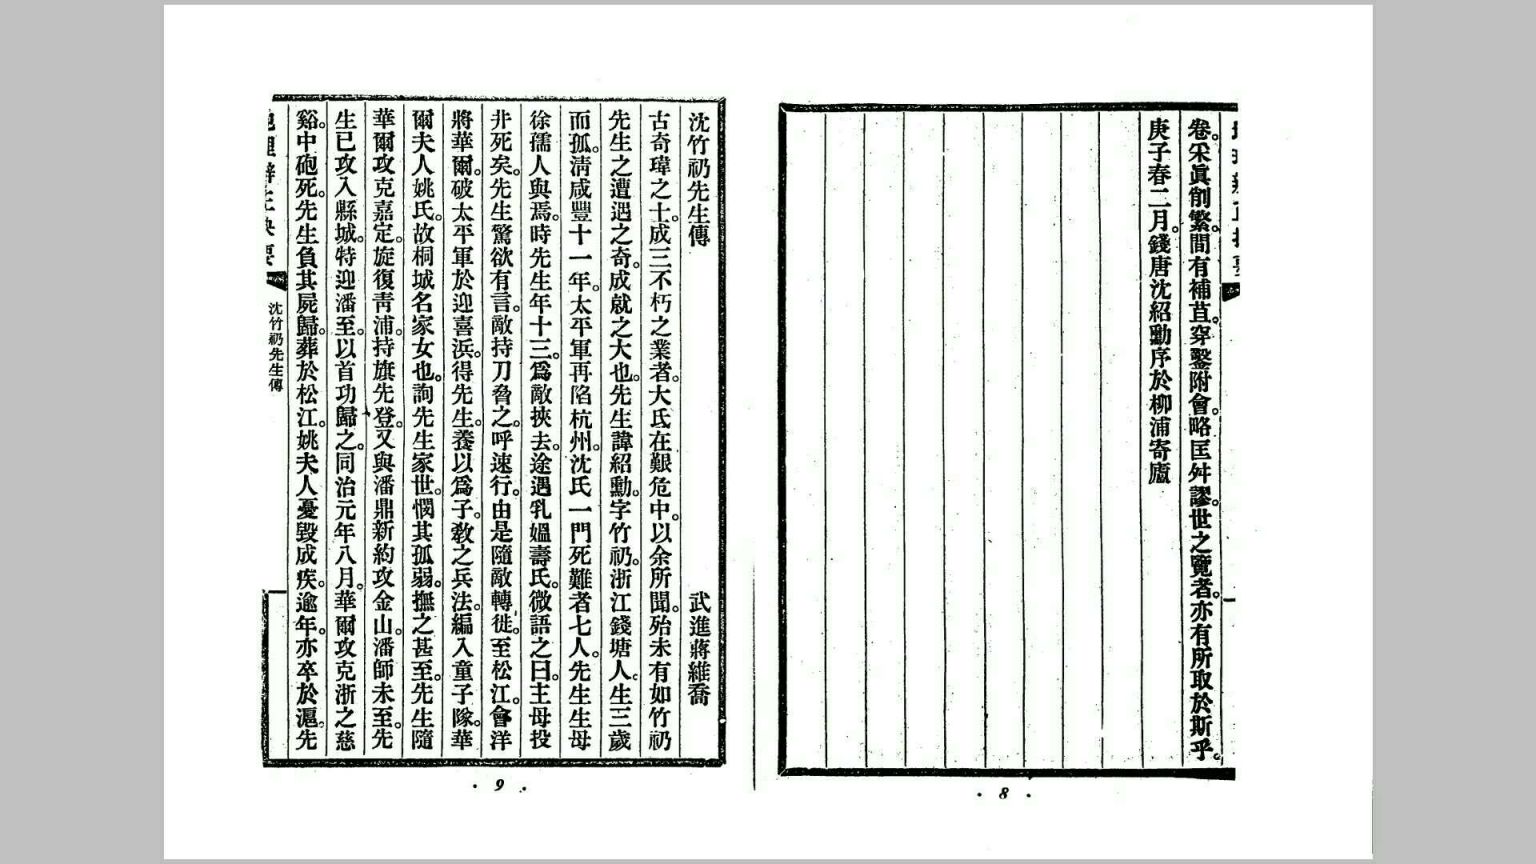 卷。采眞削繁。間有補苴。穿鑿附會。略匡舛謬。世之覽者。亦有所取於斯乎。
庚子春二月。錢唐沈紹勳序於柳浦寄廬
· 8 ·
沈竹礽先生傳　武進蔣維喬
古奇瑋之士。成三不朽之業者。大氐在艱危中。以余所聞。殆未有如竹礽
先生之遭遇之奇。成就之大也。先生諱紹勳。字竹礽。浙江錢塘人。生三歲
而孤。淸咸豐十一年。太平軍再陷杭州。沈氏一門死難者七人。先生生母
徐孺人與焉。時先生年十三。爲敵挾去。途遇乳媼壽氏。微語之曰。主母投
井死矣。先生驚欲有言。敵持刀脅之。呼速行。由是隨敵轉徙。至松江。會洋
將華爾。破太平軍於迎喜浜。得先生。養以爲子。敎之兵法。編入童子隊。華
爾夫人姚氏。故桐城名家女也。詢先生家世。憫其孤弱。撫之甚至。先生隨
華爾攻克嘉定。旋復靑浦。持旗先登。又與潘鼎新約攻金山。潘師未至。先
生已攻入縣城。特迎潘至。以首功歸之。同治元年八月。華爾攻克浙之慈
谿。中砲死。先生負其屍歸。葬於松江。姚夫人憂毀成疾。逾年。亦卒於滬。先
沈竹礽先生傳
· 9 ·